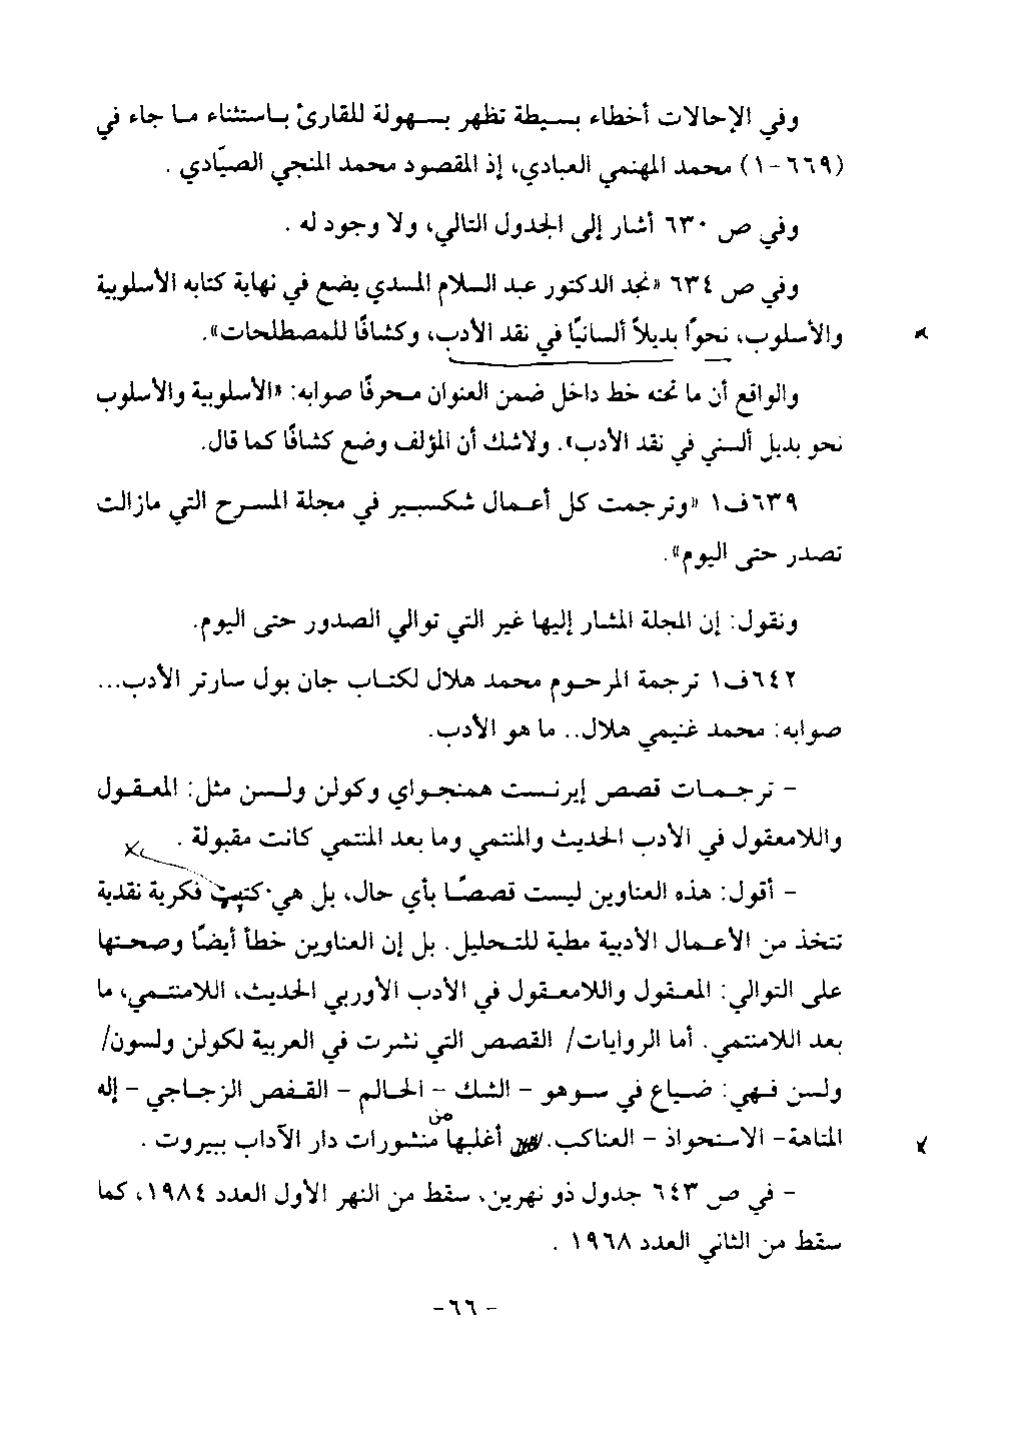 وفي الإحالات أخطاء بسيطة تظهر بسهولة للقارئ باستثناء ما جاء في
(٦٦٩-١) محمد المهنمي العبادي، إذ المقصود محمد المنجي الصيّادي .
وفي ص ٦٣٠ أشار إلى الجدول التالي، ولا وجود له .
وفي ص ٦٣٤ «نجد الدكتور عبد السلام المسدي يضع في نهاية كتابه الأسلوبية
والأسلوب، نحوًا بديلاً ألسانيًا في نقد الأدب، وكشافًا للمصطلحات».
والواقع أن ما تحته خط داخل ضمن العنوان محرفًا صوابه: «الأسلوبية والأسلوب
نحو بديل ألسني في نقد الأدب». ولاشك أن المؤلف وضع كشافًا كما قال.
٦٣٩ف١ «وترجمت كل أعمال شكسبير في مجلة المسرح التي مازالت
تصدر حتى اليوم».
ونقول: إن المجلة المشار إليها غير التي توالي الصدور حتى اليوم.
٦٤٢ف١ ترجمة المرحوم محمد هلال لكتاب جان بول سارتر الأدب...
صوابه: محمد غنيمي هلال.. ما هو الأدب.
- ترجمات قصص إيرنست همنجواي وكولن ولسن مثل: المعقول
واللامعقول في الأدب الحديث والمنتمي وما بعد المنتمي كانت مقبولة .
- أقول: هذه العناوين ليست قصصًا بأي حال، بل هي كتب فكرية نقدية
تتخذ من الأعمال الأدبية مطية للتحليل. بل إن العناوين خطأ أيضًا وصحتها
على التوالي: المعقول واللامعقول في الأدب الأوربي الحديث، اللامنتمي، ما
بعد اللامنتمي. أما الروايات/ القصص التي نشرت في العربية لكولن ولسون/
ولسن فهي: ضياع في سوهو - الشك - الحالم - القفص الزجاجي - إله
المتاهة- الاستحواذ - العناكب. أغلبها من منشورات دار الآداب ببيروت .
- في ص ٦٤٣ جدول ذو نهرين، سقط من النهر الأول العدد ١٩٨٤، كما
سقط من الثاني العدد ١٩٦٨ .
-٦٦ -